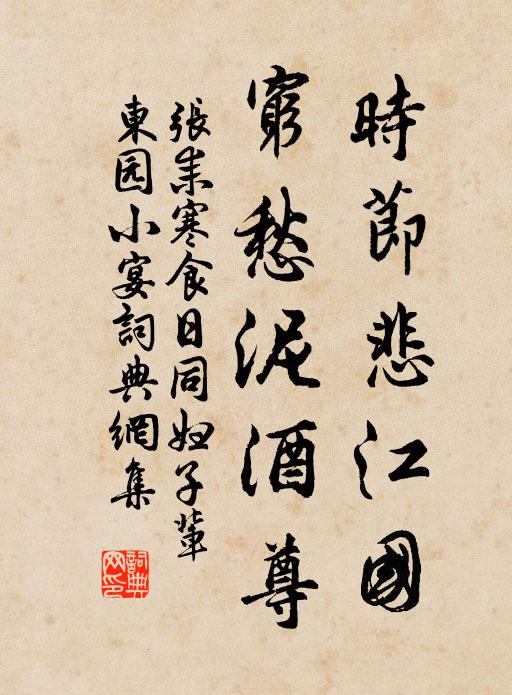 時節悲江國
窮愁泥酒尊
張耒寒食日同妞子輩
東园小宴詞典網集
詞典网印